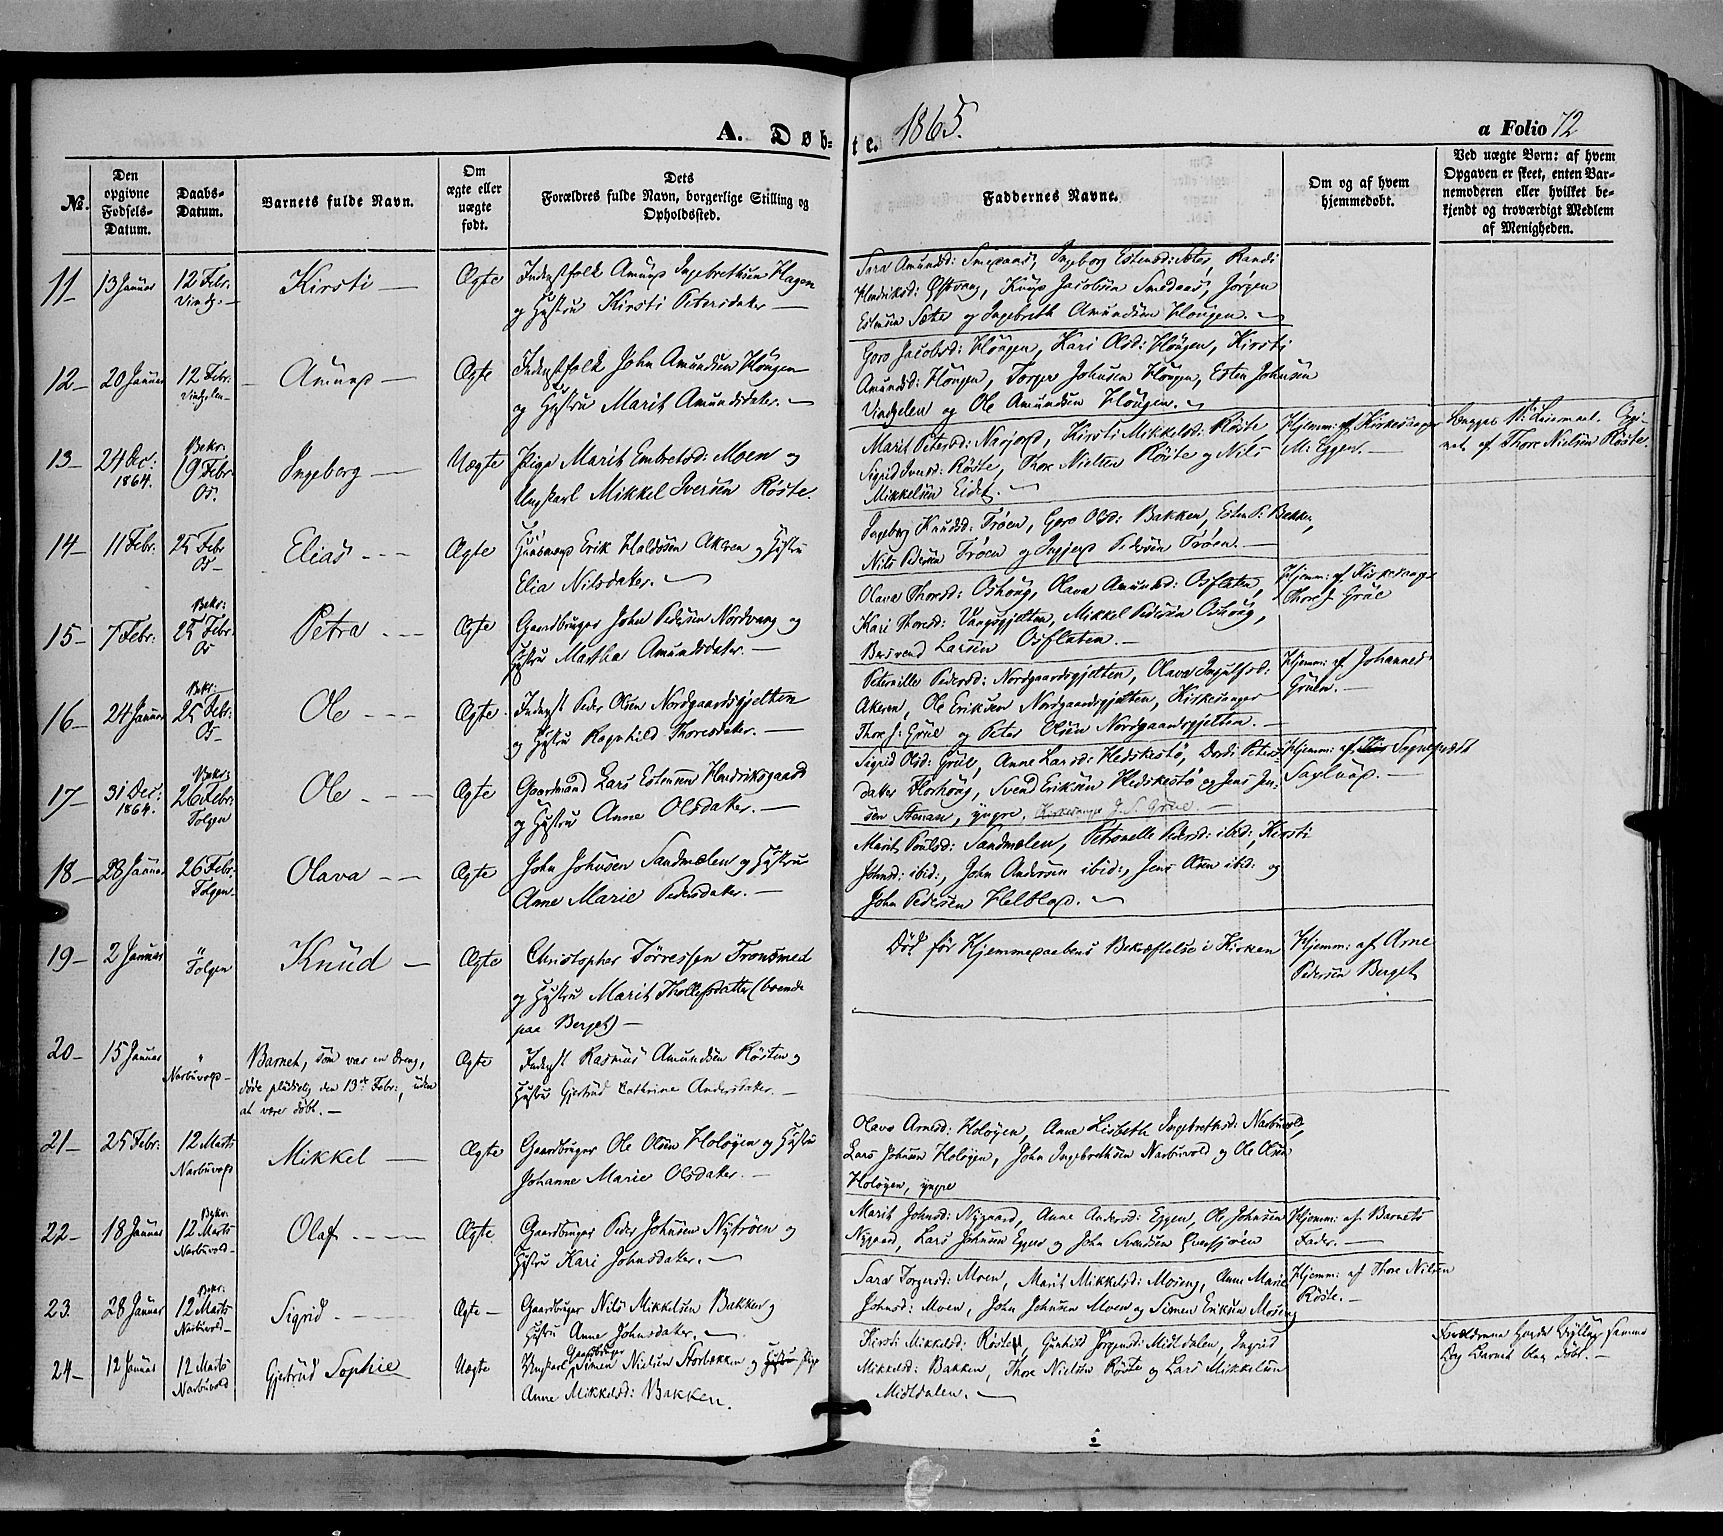 A. Døb-
te. 1865.
a Folio 72
No.
Den
opgivne
Fødsels-
Datum.
Daabs-
Datum.
Barnets fulde Navn.
Om
ægte eller
uægte
født.
Dets
Forældres fulde Navn, borgerlige Stilling og
Opholdssted.
Faddernes Navne.
Om og af hvem
hjemmedøbt.
Ved uægte Børn: af hvem
Opgaven er skeet, enten Bar-
nemoderen eller hvilket be-
kjendt og troværdigt Medlem
af Menigheden.
11 13 Januar 12 Febr. Kirsti Ægte Amund Ingebretsen Hagen
og Hustru Kirsti Petersdater
Sara Amundsd: Ingeborg Estensd: Randi
Henriksd: Østvang, Knud Jacobsen Jørgen
Estensen Sæter og Ingebreth Amundsen Hougen.
12 20 Januar 12 Febr. Vingelen Amund Ægte John Amundsen Hougen
og Hustru Marit Amundsdater.
Goro Jacobsd: Hougen, Kari Olsd: Hougen, Kirsti
Amundsd: Hougen, Torger Johnsen Hougen, Esten Johnsen
Vingelen og Ole Amundsen Hougen.
13 24 Dec: 1864. Bekr: 19 Febr Os. Ingeborg Uægte Pige Marit Embretsd: Moen og
Ungkarl Mikkel Iversen Røste.
Marit Petersd: Kirsti Mikkelsd: Røste,
Sigrid Iversd: Røste, Thore Nielsen Røste og Nils
Mikkelsen Eidet.
Hjemm: af Kirkesanger
M: Eggen.
Begges 1ste Leiermaal. Opgi-
vet af Thore Nielsen Røste.
14 11 Febr. 25 Febr Os Elias Ægte Huusmand Erik Akeren og Hustru
Elia Nilsdater.
Ingeborg Knudsd: Trøen, Goro Olsd: Bakken, Esten P: Bakken,
Nils Pedersen Trøen og Pedersen Trøen.
15 7 Febr. Bekr: 25 Febr. Os Petra Ægte Gaardbruger John Pedersen Nordvang og
Hustru Martha Amundsdater.
Olava Thoresd: Oshoug, Olava Amundsd: Osflaten,
Kari Thoresd: Vangsgjelten, Mikkel Pedersen Oshoug,
Larsen Osflaten.
Hjemm: af Kirkesanger
Thore J. Grue
16 24 Januar Bekr: 25 Febr. Os Ole Ægte Inderst Peder Olsen Nordgaardsgjelten
og Hustru Ragnhild Thoresdater.
Peternille Pedersd: Nordgaardsgjelten, Olava Ingulfsd:
Akeren, Ole Eriksen Nordgaardsgjelten, Kirkesanger
Thor J: Grue og Peter Olsen Nordgaardsgjelten.
Hjemm: af Johannes
Gruen.
17 31 Dec: 1864. Bekr: 26 Febr: Tolgen Ole Ægte Gaardmand Lars Estensen Hendriksgaard
og Hustru Anne Olsdater.
Sigrid Olsd: Grue, Anne Larsd: Hedskestø, Dordi Peters-
dater Horhoug, Svend Eriksen Hedskestø og Jens Jen-
sen Stenaas, yngre. Kirkesanger J. S. Grue.
Hjemm: af Sognepræst
18 28 Januar 26 Febr. Tolgen Olava Ægte John Johnsen Sandmælen og Hustru
Anne Marie Pedersdater.
Marit Poulsd: Sandmælen, Petronelle Pedersd: ibid:, Kirsti
Johnsd: ibid:, John Andersen ibid:, Jens Olsen ibid: og
John Pedersen
19 2 Januar " Tolgen Knud Ægte Christopher Tørressen Tronsmed
og Hustru Marit Thollefsdatter (boende
paa Berget)
Død før Hjemmedaabens Bekræftelse i Kirken
Hjemm: af Arne
Pedersen Berget
20 15 Januar " Narbuvold Barnet, som var en Dreng,
døde pludselig den 13de Febr:, uden
at være døbt.
Ægte Inderst Rasmus Amundsen Røsten og
Hustru Gjertrud Cathrine Andersdater.
21 25 Febr: 12 Marts Narbuvold Mikkel Ægte Gaardbruger Ole Olsen Holøyen og Hustru
Johanne Marie Olsdater.
Olava Arnesd: Holøyen, Anne Lisbeth Ingebretsd: Narbuvold,
Lars Johnsen Holøyen, John Ingebrethsen Narbuvold og Ole Olsen
Holøyen, yngre
22 18 Januar Bekr. 12 Marts Narbuvold Olaf Ægte Gaardbruger Peder Johnsen Nytrøen og
Hustru Kari Johnsdater.
Marit Johnsd: Nygaard, Anne Andersd: Eggen, Ole Johnsen
Nygaard, Lars Johnsen Eggen og John Svendsen
Hjemm: af Barnets
Fader.
23 28 Januar Bekr: 12 Marts Narbuvold Sigrid Ægte Gaardbruger Nils Mikkelsen Bakken og
Hustru Anne Johnsdater.
Sara Torgersd: Moen, Marit Mikkelsd: Moseng, Anne Marie
Johnsd: Moen, John Johnsen Moen og Simen Eriksen Moseng
Hjemm: af Thore Nilsen
Røste.
24 12 Januar 12 Marts Narbuvold Gjertrud Sophie Uægte Ungkarl Gaardbruger Simen Nielsen Storbækken og Hustru Pige
Anne Mikkelsd: Bakken.
Kirsti Mikkelsd: Røste, Gunhild Jørgensd: Midtdalen, Ingrid
Mikkelsd: Bakken, Thore Nielsen Røste og Lars Mikkelsen
Midtdalen.
Forældrene havde Bryllup samme
Dag Barnet blev døbt.